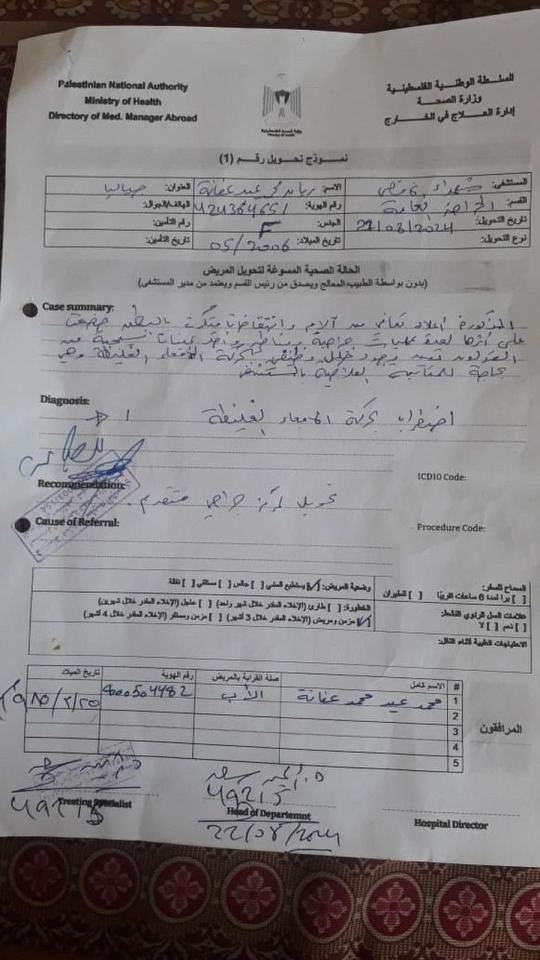 Palestinian National Authority
Ministry of Health
Directory of Med. Manager Abroad
السلطة الوطنية الفلسطينية
وزارة الصحة
إدارة العلاج في الخارج
نموذج تحويل رقم (1)
المستشفى: شهداء الاقصى الاسم: محمد عيد عفانة العنوان:
القسم: الجراحة العامة رقم الهوية: الهاتف/الجوال:
تاريخ التحويل: 22/08/2024 الجنس: F رقم التأمين:
نوع التحويل: تاريخ الميلاد: 05/2006 تاريخ التأمين:
الحالة الصحية المسوغة لتحويل المريض
(يدون بواسطة الطبيب المعالج ويصدق من رئيس القسم ويعتمد من مدير المستشفى)
Case summary:
المذكورة اعلاه تعاني من آلام وانتفاخات متكررة بالبطن خضعت
على اثرها لعدة عمليات جراحية واخذ عينات نسيجية من
القولون تبين وجود خلل وظيفي بحركة الامعاء الغليظة وهي
بحاجة للمتابعة العلاجية بالمستشفى
Diagnosis:
اضطراب بحركة الامعاء الغليظة
Recommendation:
ICD10 Code:
تحويل لمركز جراحي متقدم.
Cause of Referral:
Procedure Code:
السماح للسفر:
[ ] برا لمدة 6 ساعات تقريبًا [ ] الطيران
وضعية المريض: [✓] يستطيع المشي [ ] جالس [ ] مستلقي [ ] نقالة
علامات السل الرئوي النشط:
[ ] نعم [ ] لا
الخطورة: [ ] طارئ (الإخلاء المغادر خلال شهر واحد) [ ] عاجل (الإخلاء المغادر خلال شهرين)
[✓] مزمن ومريض (الإخلاء المغادر خلال 3 أشهر) [ ] مزمن ومستقر (الإخلاء المغادر خلال 4 أشهر)
الاحتياجات الطبية أثناء النقل:
المرافقون
# الاسم كامل صلة القرابة بالمريض رقم الهوية تاريخ الميلاد
1 محمد عيد محمد عفانة الأب 900504482
2
3
4
5
49215
Treating Specialist
49215
Head of Departemnt
22/08/2024
Hospital Director